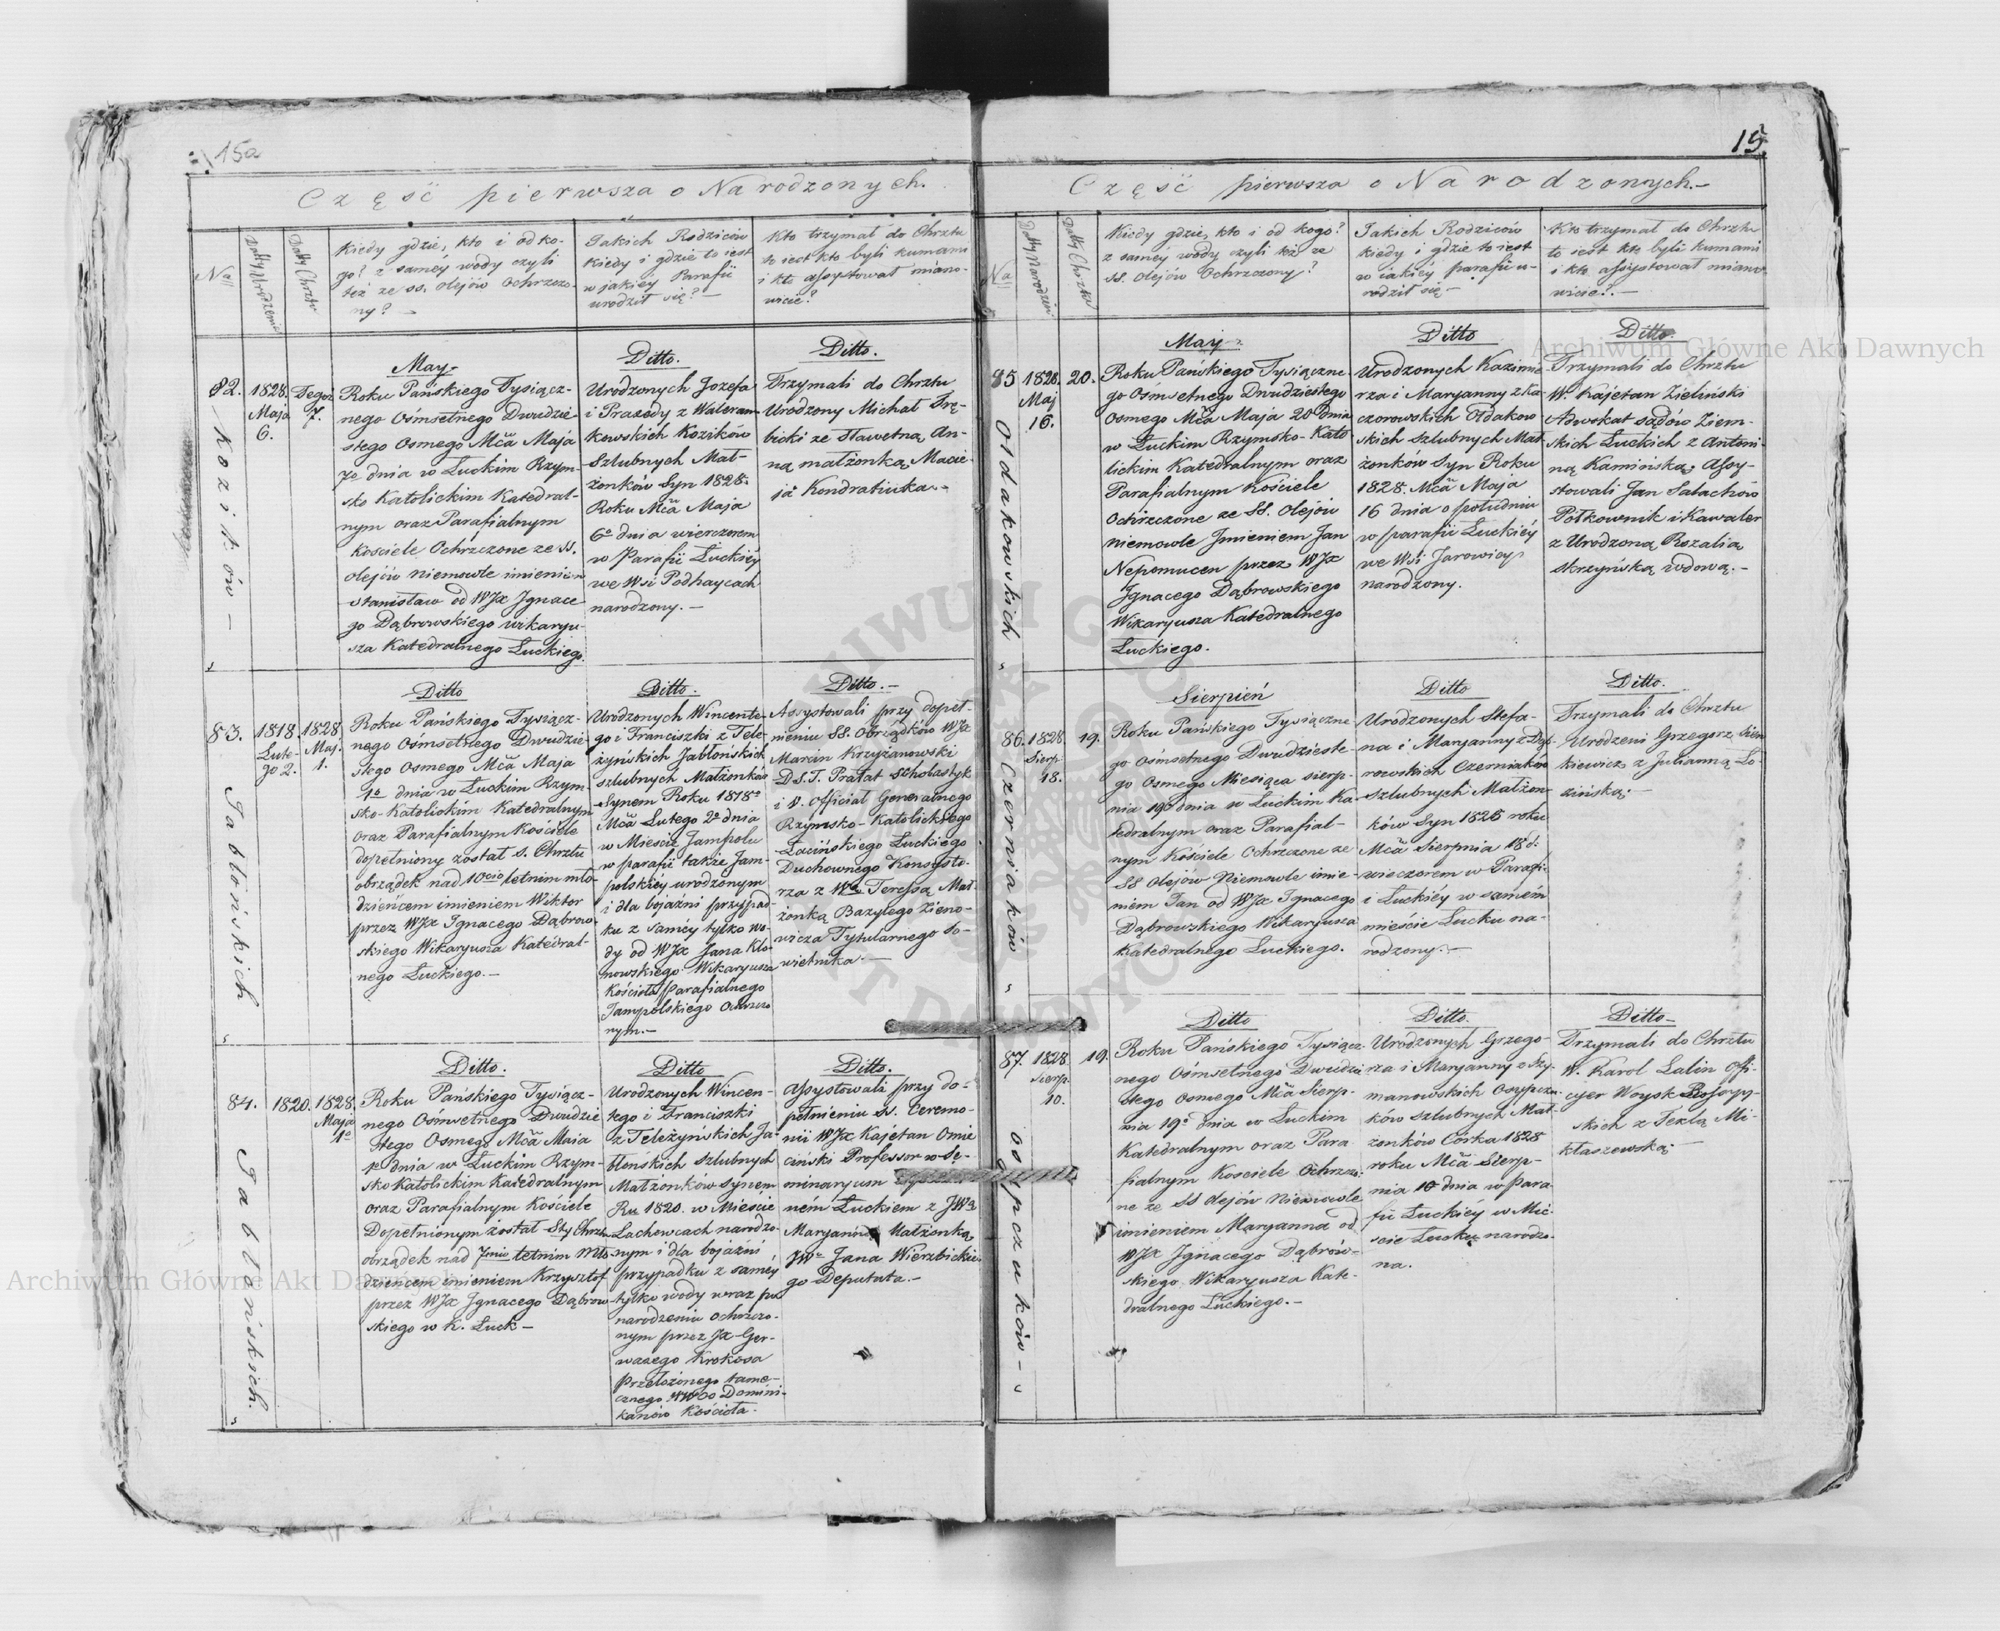 15a
Część pierwsza o Narodzonych.
Na
Datty Urodzenia
Datty Chrztu
Kiedy gdzie, kto i od ko-
go? z saméy wody czyli
też ze ss. olejów Ochrzczo-
ny? —
Jakich Rodziców
kiedy i gdzie to iest
w jakiéy Parafii
urodził się? —
Kto trzymał do Chrztu
to iest kto byli kumami
i kto assystował miano-
wicie?
82.
Kozików —
1828.
Maja
6.
Tegoż
7.
May.
Roku Pańskiego Tysiącz-
nego Ośmsetnego Dwudzie-
stego Osmego Mča Maja
7o dnia w Łuckim Rzym-
sko Katolickim Katedral-
nym oraz Parafialnym
kościele Ochrzczone ze SS.
olejów niemowle imieniem
Stanisław od WJX Jgnace-
go Dąbrowskiégo wikaryu-
sza Katedralnego Łuckiego.
Ditto.
Urodzonych Jozefa
i Praxedy z Waleran-
kowskich Kozików
Szlubnych Mał-
żonków Syn 1828.
Roku Mča Maja
6o dnia wieczorem
w Parafii Łuckiéy
we Wsi Podhaycach
narodzony. —
Ditto.
Trzymali do Chrztu
Urodzony Michał Trę-
bicki ze sławetną An-
ną małżonką Macie-
ja Kondratiuka. —
83.
Jabłońskich
1818.
Lute-
go 2.
1828.
Maj.
1.
Ditto
Roku Pańskiego Tysiącz-
nego Ośmsetnego Dwudzie-
stego Osmego Mča Maja
1o dnia w Łuckim Rzym-
sko-Katolickim Katedralnym
oraz Parafialnym Kościele
dopełniony został s. Chrztu
obrządek nad 10cio letnim mło-
dzieńcem imieniem Wiktor
przez WJX Jgnacego Dąbrow-
skiego Wikaryusza Katedral-
nego Łuckiego. —
Ditto.
Urodzonych Wincente-
go i Franciszki z Tele-
żyńskich Jabłońskich
szlubnych Małżonków
Synem Roku 1818o
Mča Lutego 2o dnia
w Mieście Jampolu
w parafii także Jam-
polskiéy urodzonym
i dla bojaźni przypad-
ku z saméy tylko wo-
dy od WJX Jana Kło-
nowskiego Wikaryusza
Kościoła parafialnego
Jampolskiego Ochrzczo-
nym. —
Ditto. —
Assystowali przy dopeł-
nieniu SS. Obrządków WJX
Marcin Krzyżanowski
D.S.T. Prałat Scholastyk
i V. Officiał Generalnego
Rzymsko-Katolickiego
Łacińskiego Łuckiego
Duchownego Konsysto-
rza z Wą Teressą Mał-
żonką Bazylego Zieno-
wicza Tytularnego So-
wietnika. —
84.
Jabłońskich.
1820.
1828.
Maja
1o
Ditto.
Roku Pańskiego Tysiącz-
nego Ośmsetnego Dwudzie
stego Osmego Mča Maia
1o dnia w Łuckim Rzym-
sko Katolickim Katedralnym
oraz Parafialnym Kościele
Dopełnionym został Sty Chrztu
obrządek nad 7mio letnim Mło-
dzieńcem imieniem Krzysztof
przez WJX Jgnacego Dąbrow
skiego w K. Łuck —
Ditto
Urodzonych Wincen-
tego i Franciszki
z Teleżyńskich Ja-
błońskich szlubnych
Małżonków synem
Ru 1820. w Mieście
Lachowcach narodzo-
nym i dla bojaźni
przypadku z saméy
tylko wody wraz po
narodzeniu ochrzczo-
nym przez JX Ger-
wazego Krokosa
Przełożonego tame-
cznego WWOO Domini-
kanów Kościoła.
Ditto.
Assystowali przy do-
pełnieniu Sś. Ceremo-
nii WJX Kajetan Omie
ciński Professor w Se-
minaryum
ném Łuckiem z JWą
Maryanną Małżonką
JWo Jana Wierzbickie-
go Deputata. —
15
Część pierwsza o Narodzonych. —
Na
Datty Narodzin
Datty Chrztu
Kiedy gdzie, kto i od kogo?
z saméy wody czyli też ze
SS. olejów Ochrzczony?
Jakich Rodziców
kiedy i gdzie to iest
w iakiéy parafii u-
rodził się —
Kto trzymał do Chrztu
to iest kto byli kumami
i kto assystował miano-
wicie? —
85
Ołdakowskich
1828.
Maj
16.
20.
May.
Roku Pańskiego Tysiączne
go Ośmsetnego Dwudziestego
Osmego Mča Maja 20 dnia
w Łuckim Rzymsko-Kato
lickim Katedralnym oraz
Parafialnym Kościele
Ochrzczone ze SS. olejów
niemowle Jmieniem Jan
Nepomucen przez WJX
Jgnacego Dąbrowskiego
Wikaryusza Katedralnego
Łuckiego.
Ditto
Urodzonych Kazimie
rza i Maryanny z Ka-
czorowskich Ołdakow
skich szlubnych Mał
żonków Syn Roku
1828. Mča Maja
16 dnia o południu
w parafii Łuckiéy
we Wsi Jarowicy
narodzony.
Ditto.
Trzymali do Chrztu
W. Kajetan Zieliński
Adwokat sądów Ziem-
skich Łuckich z Antoni-
ną Kamińską; Assy-
stowali Jan Sałachow
Połkownik i Kawaler
z Urodzoną Rozalią
Skrzyńską wdową. —
86.
Czerniaków
1828
Sierp.
18.
19.
Sierpień
Roku Pańskiego Tysiączne
go Ośmsetnego Dwudzieste-
go Osmego Miesiąca sierp-
nia 19o dnia w Łuckim Ka
tedralnym oraz Parafial-
nym Kościele Ochrzczone ze
SS Olejów Niemowle imie-
niem Jan od WJX Jgnacego
Dąbrowskiego Wikaryusza
Katedralnego Łuckiego.
Ditto
Urodzonych Stefa-
na i Maryanny z Dąb-
rowskich Czerniaków
szlubnych Małżon
ków Syn 1828 roku
Mča Sierpnia 18 d.
wieczorem w Parafi-
i Łuckiéy w samém
mieście Łucku na-
rodzony. —
Ditto.
Trzymali do Chrztu
Urodzeni Grzegorz Sien
kiewicz z Julianną Ło-
zińską. —
87.
Osypczuków —
1828
Sierp.
10.
19.
Ditto
Roku Pańskiego Tysiącz-
nego Ośmsetnego Dwudzie
stego Osmego Mča Sierp-
nia 19o dnia w Łuckim
Katedralnym oraz Para
fialnym Kosciele Ochrzczo-
ne ze SS olejów Niemowle
imieniem Maryanna od
WJX Jgnacego Dąbrow-
skiego Wikaryusza Kate-
dralnego Łuckiego. —
Ditto.
Urodzonych Grzego-
rza i Maryanny z Szy-
manowskich Osypczu-
ków szlubnych Mał
żonków Córka 1828
roku Mča Sierp-
nia 10 dnia w para
fii Łuckiéy w Mie-
ście Łucku narodzo-
na.
Ditto —
Trzymali do Chrztu
W. Karol Lalin offi-
cyer Woysk Rossyy-
skich z Teklą Mi-
kłaszewską —
Archiwum Główne Akt Dawnych
Archiwum Główne Akt Dawnych